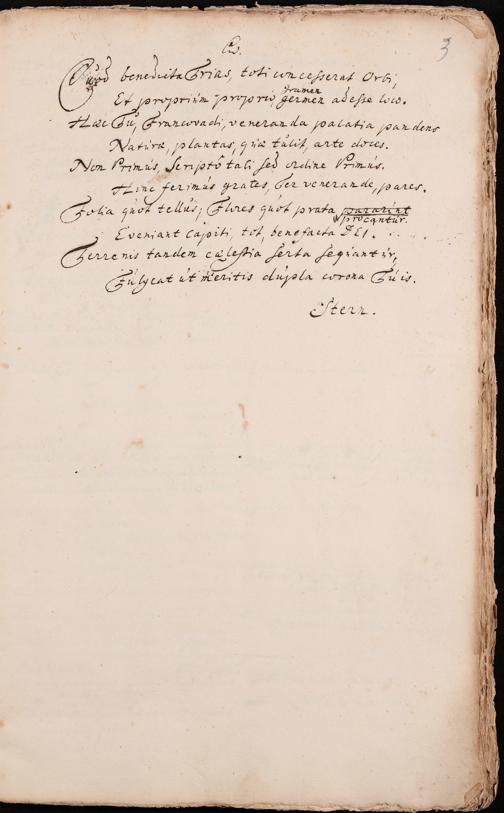 3
Quod benedicta Trias, toti concesserat Orbi,
gramen
Et proprium proprio, germen adesse loco.
Hæc Tu, Francovadi, veneranda palatia pandens
Naturæ, plantas, quæ tulit, arte doces.
Non Primus, Scripto tali sed ordine Primus.
Hinc ferimus grates, Ter venerande, pares.
Folia quot tellus, Flores quot prata pararint
procantur.
Eveniant Capiti, tot, benefacta DEI.
Terrenis tandem cælestia serta sequantur,
Fulgeat ut meritis dupla corona Tuis.
Stern.